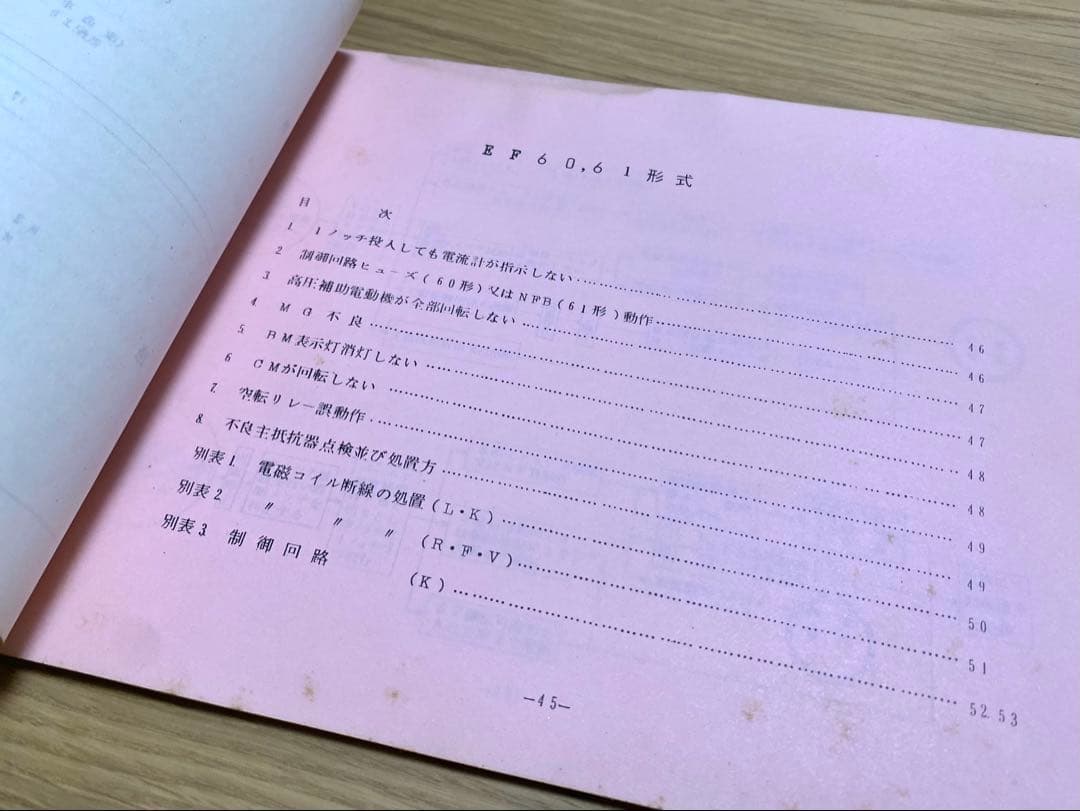 EF60,61形式
目次
1. 1ノッチ投入しても電流計が指示しない……………46
2 制御回路ヒューズ(60形)又はNFB(61形)動作……………46
3 高圧補助電動機が全部回転しない……………47
4. MG不良……………47
5. BM表示灯消灯しない……………48
6 CMが回転しない……………48
7. 空転リレー誤動作……………49
8. 不良主抵抗器点検並び処置方……………49
別表1. 電磁コイル断線の処置(L・K)……………50
別表2. 〃 〃 〃 (R・F・V)……………51
別表3. 制御回路 (K)……………52.53
—45—